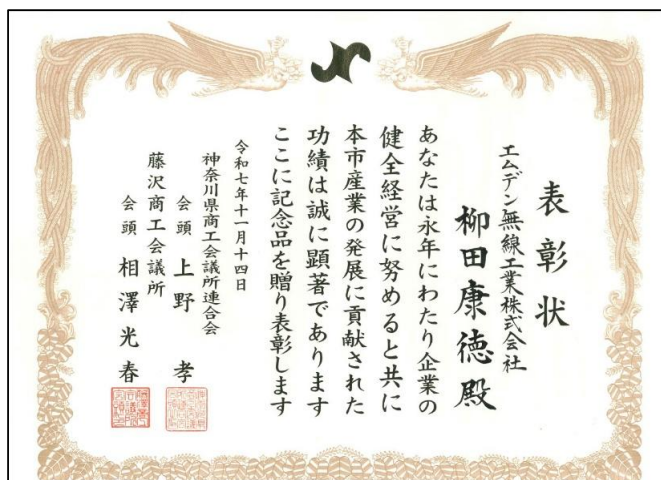 表彰状
エムデン無線工業株式会社
柳田康徳殿
あなたは永年にわたり企業の
健全経営に努めると共に
本市産業の発展に貢献された
功績は誠に顕著であります
ここに記念品を贈り表彰します
令和七年十一月十四日
神奈川県商工会議所連合会
会頭 上野 孝
藤沢商工会議所
会頭 相澤光春